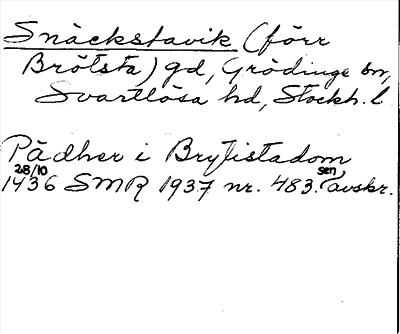 Snäckstavik (förr
Brötsta) gd, Grödinge sn,
Svartlösa hd, Stockh. l
Pädher i Brytistadom
28/10 sen
1436 SMR 1937 nr. 483. avskr.